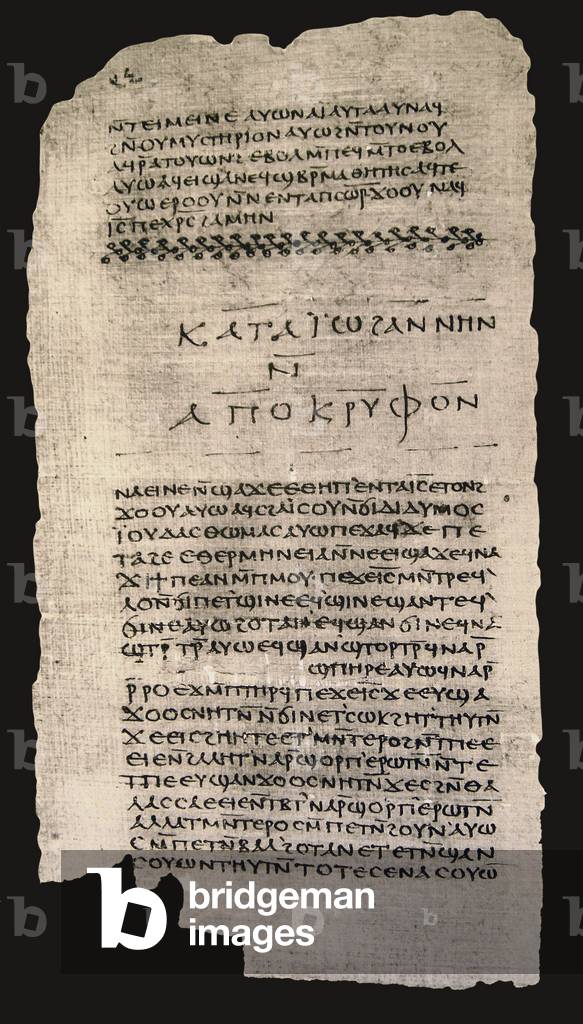 ⲛ̄ⲧⲉⲓⲙⲉⲓⲛⲉⲁⲩⲱⲛⲁⲓⲁⲩⲧⲁⲁⲩⲛⲁϥ
ϩⲛ̄ⲟⲩⲙⲩⲥⲧⲏⲣⲓⲟⲛⲁⲩⲱϩⲛ̄ⲧⲟⲩⲛⲟⲩ
ⲁϥⲣ̄ⲁⲧⲟⲩⲱⲛϩⲉⲃⲟⲗⲙ̄ⲡⲉϥⲙ̄ⲧⲟⲉⲃⲟⲗ
ⲁⲩⲱⲁϥⲉⲓϣⲁⲛⲉϥϣⲃⲣ̄ⲙⲁⲑⲏⲧⲏⲥⲁϥⲧⲉ
ⲟⲩⲱⲉⲣⲟⲟⲩⲛ̄ⲛⲉⲛⲧⲁⲡⲥⲱ̄ⲣϫⲟⲟⲩⲛⲁϥ
ⲓ̄ⲥ̄ⲡⲉⲭⲣ̄ⲥ̄ϩⲁⲙⲏⲛ
ⲕⲁⲧⲁⲓ̈ⲱϩⲁⲛⲛⲏⲛ
ⲛ̄
ⲁⲡⲟⲕⲣⲩⲫⲟⲛ
ⲛⲁⲉⲓⲛⲉⲛ̄ϣⲁϫⲉⲉⲑⲏⲡ'ⲉⲛⲧⲁⲓ̄ⲥ̄ⲉⲧⲟⲛϩ
ϫⲟⲟⲩⲁⲩⲱⲁϥⲥϩⲁⲓⲥⲟⲩⲛ̄ϭⲓⲇⲓⲇⲩⲙⲟⲥ
ⲓ̈ⲟⲩⲇⲁⲥⲑⲱⲙⲁⲥⲁⲩⲱⲡⲉϫⲁϥϫⲉⲡⲉ
ⲧⲁϩⲉⲉⲑⲉⲣⲙⲏⲛⲉⲓⲁⲛ̄ⲛⲉⲉⲓϣⲁϫⲉϥⲛⲁ
ϫⲓϯⲡⲉⲁⲛⲙ̄ⲡⲙⲟⲩ·ⲡⲉϫⲉⲓ̄ⲥ̄ⲙⲛ̄ⲧⲣⲉϥ'
ⲗⲟⲛ̄ϭⲓⲡⲉⲧ'ϣⲓⲛⲉⲉϥϣⲓⲛⲉϣⲁⲛⲧⲉϥ'
ϭⲓⲛⲉⲁⲩⲱϩⲟⲧⲁⲛⲉϥϣⲁⲛϭⲓⲛⲉϥⲛⲁ
ϣⲧⲣ̄ⲧⲣ̄ⲁⲩⲱⲉϥϣⲁⲛϣⲧⲟⲣⲧⲣ̄ϥⲛⲁⲣ̄
ϣⲡⲏⲣⲉⲁⲩⲱϥⲛⲁⲣ̄
ⲣ̄ⲣⲟⲉϫⲙ̄ⲡⲧⲏⲣϥ'ⲡⲉϫⲉⲓ̄ⲥ̄ϫⲉⲉⲩϣⲁ
ϫⲟⲟⲥⲛⲏⲧⲛ̄ⲛ̄ϭⲓⲛⲉⲧ'ⲥⲱⲕϩⲏⲧ'ⲑⲩⲧⲛ̄
ϫⲉⲉⲓⲥϩⲏⲏⲧⲉⲉⲧ'ⲙⲛ̄ⲧⲉⲣⲟϩⲛ̄ⲧⲡⲉⲉ
ⲉⲓⲉⲛ̄ϩⲁⲗⲏⲧ'ⲛⲁⲣ̄ϣⲟⲣⲡ'ⲉⲣⲱⲧⲛ̄ⲛ̄ⲧⲉ
ⲧⲡⲉⲉⲩϣⲁⲛϫⲟⲟⲥⲛⲏⲧⲛ̄ϫⲉⲥϩⲛ̄ⲑⲁ
ⲗⲁⲥⲥⲁⲉⲉⲓⲉⲛ̄ⲧⲃⲧ'ⲛⲁⲣ̄ϣⲟⲣⲡ'ⲉⲣⲱⲧⲛ̄
ⲁⲗⲗⲁⲧⲙⲛ̄ⲧⲉⲣⲟⲥⲙ̄ⲡⲉⲧⲛ̄ϩⲟⲩⲛ'ⲁⲩⲱ
ⲥⲙ̄ⲡⲉⲧⲛ̄ⲃⲁⲗ'ϩⲟⲧⲁⲛⲉⲧⲉⲧⲛ̄ϣⲁⲛ
ⲥⲟⲩⲱⲛⲧⲏⲩⲧⲛ̄ⲧⲟⲧⲉⲥⲉⲛⲁⲥⲟⲩⲱ
b bridgeman images